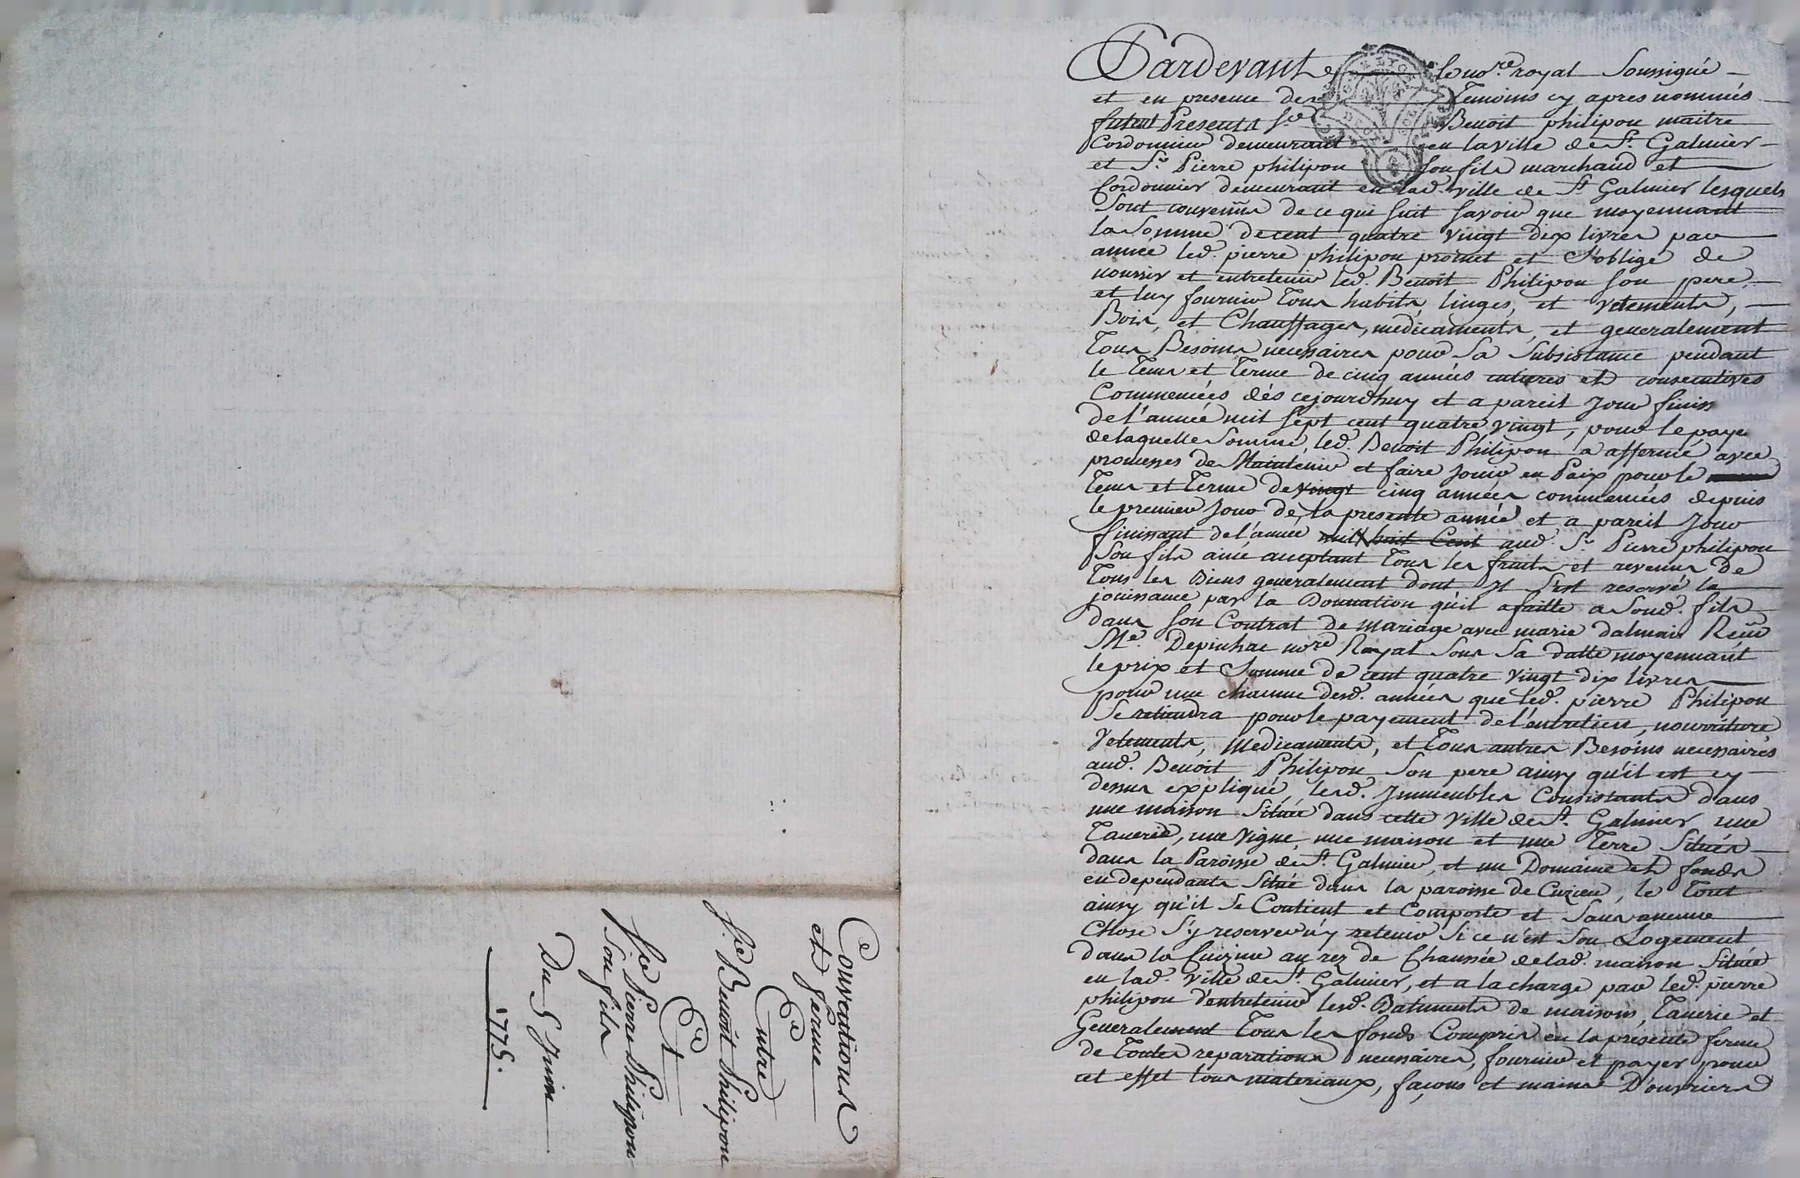 Pardevant le no.re royal Soussigné
et en presence des temoins cy apres nommés
furent Presents S.r Benoit philipon maitre
Cordonnier demeurant en la ville de S.t Galmier
et S.r Pierre philipon son fils marchand et
Cordonnier demeurant en lad. ville de S.t Galmier lesquels
sont convenus de ce qui suit savoir que moyennant
la Somme de cent quatre vingt dix livres par
année led. pierre philipon promet et S'oblige de
nourrir et entretenir led. Benoit Philipon son pere,
et luy fournir tous habits, linges, et vetements,
Bois, et Chauffages, medicaments, et generalement
tous Besoins necessaires pour Sa Subsistance pendant
le tems et terme de cinq années entieres et consecutives
Commencées dès cejourdhuy et a pareil Jour finir
de l'année mil sept cent quatre vingt, pour le paye
de laquelle Somme, led. Benoit Philipon a affermé avec
promesses de Maintenir et faire Jouir en Paix pour le
tems et terme de vingt cinq années commencées depuis
le premier Jour de la presente année et a pareil Jour
finissant de l'année mil huit Cent aud. S.r Pierre philipon
Son fils ainé acceptant tous les fruits et revenus de
tous les Biens generalement dont Il s'est reservé la
jouissance par la Donnation qu'il a faitte a Soud. fils
dans son Contrat de Mariage avec marie dalmais Reçu
M.e Depinhac no.re Royal Sous Sa datte moyennant
le prix et Somme de cent quatre vingt dix livres
pour une chacune desd. années que led. pierre Philipon
Se retiendra pour le payement de l'entretien, nourriture
Vetements, Medicaments, et tous autres Besoins necessaires
aud. Benoit Philipon Son pere ainsy qu'il est cy
dessus expliqué, lesd. Immeubles Consistants dans
une maison Située dans cette Ville de S.t Galmier une
Tanerie, une Vigne, une maison et une Terre Situés
dans la Paroisse de S.t Galmier, et un Domaine et fonds
en dependants Situé dans la paroisse de Cuzieu, le tout
ainsy qu'il Se Contient et Comporte et Sans aucune
Chose S'y reserver n'y retenir Si ce n'est Son Logement
dans la Cuizine au rez de Chaussée de lad. maison Située
en lad. Ville de S.t Galmier, et a la charge par led. pierre
philipon d'entretenir lesd. Batiments de maisons, Tanerie et
Generalement tous les fonds Compris en la presente ferme
de toutes reparations necessaires, fournir et payer pour
cet effet tous materiaux, façons et mains D'ouvriers
Conventions
et ferme
Entre
S.r Benoit Philipon
Et
S.r Pierre Philipon
Son fils
Du 5 Juin
1775.